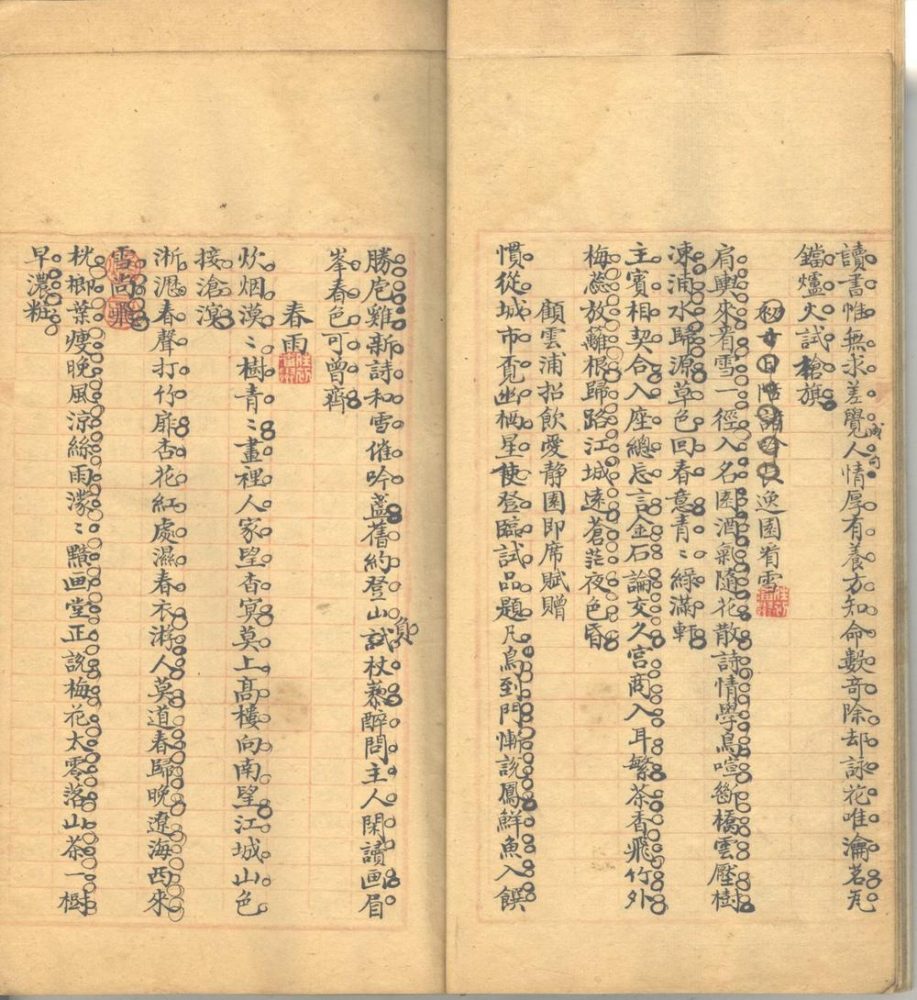 讀書惟無求差覺人情厚有養方知命數奇除却詠花唯瀹茗瓦
成句
鐺爐火試槍旗
初十日陪諸吟長逸園看雪
肩輿來看雪一徑入名園酒氣隨花散詩情學鳥喧斷橋雲壓樹
凍浦水歸源草色回春意青〻綠滿軒
主賓相契合入座總忘言金石論交久宮商入耳繁茶香飛竹外
梅蕊放籬根歸路江城遠蒼茫夜色昏
顧雲浦招飲愛静園即席賦贈
慣從城市覓幽栖星使登臨試品題凡鳥到門慚說鳳鮮魚入饌
勝庖雞新詩和雪催吟盞舊約登山試杖藜醉問主人閑讀画眉
負
峯春色可曾齊
春雨
炊烟漠〻樹青〻畫裡人家望杳冥莫上髙樓向南望江城山色
接滄溟
淅瀝春聲打竹扉杏花紅處濕春衣游人莫道春歸晚遼海西來
雪尚飛
桄榔葉瘦晚風涼絲雨濛〻黯画堂正說梅花太零落山茶一樹
早濃粧